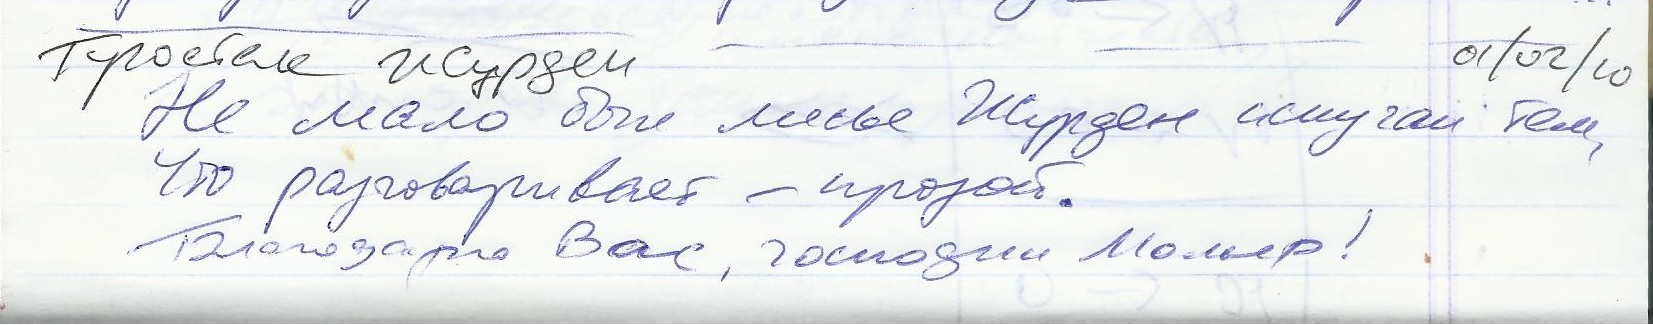 Простак Журден 01/02/10
Не мало был мсье Журден испуган тем,
Что разговаривает – прозой.
Благодарю Вас, господин Мольер!